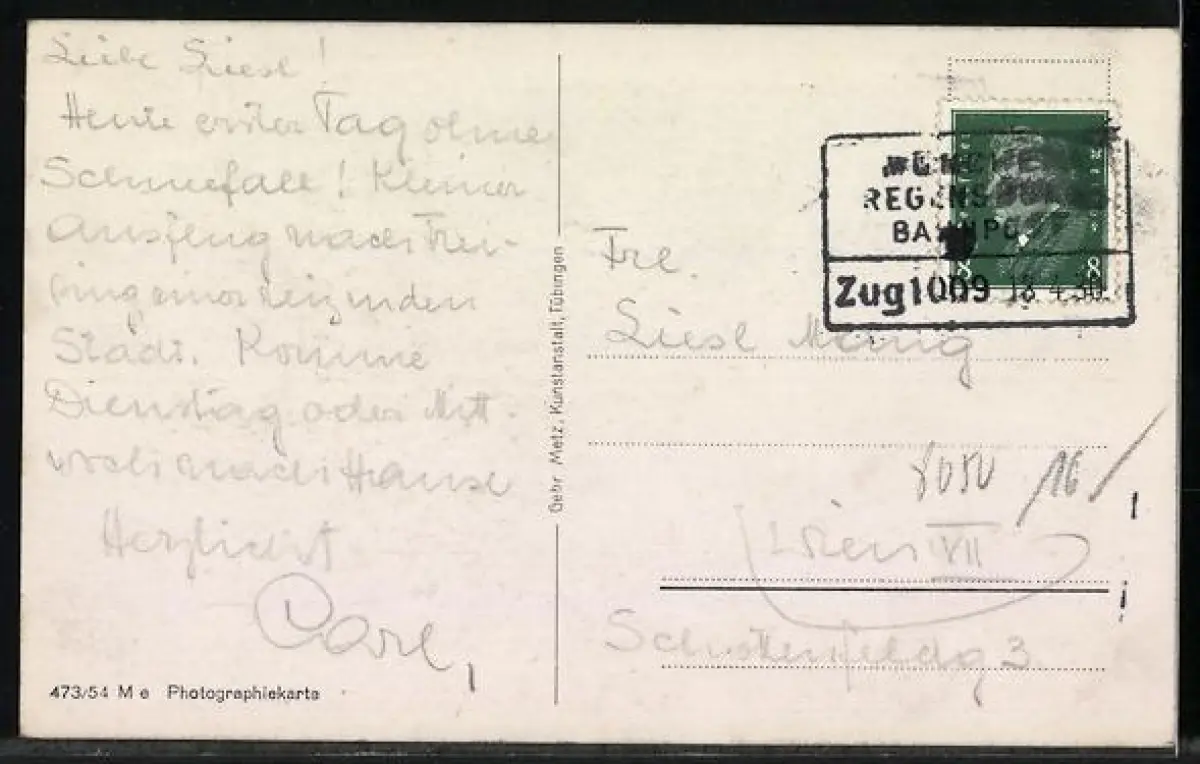 Liebe Liesl!
Heute erster Tag ohne
Schneefall! Kleiner
Ausflug nach Frei-
sing einer reizenden
Stadt. Komme
Dienstag oder Mitt-
woch nach Hause
Herzlichst
Carl
473/54 M e Photographiekarte
Gebr. Metz, Kunstanstalt, Tübingen
REGENSBURG
BAHNPO
Zug 1009 18.4.30
8 8
Frl.
Liesl Mang
8050 /16/
Wien VII
Schottenfeldg 3